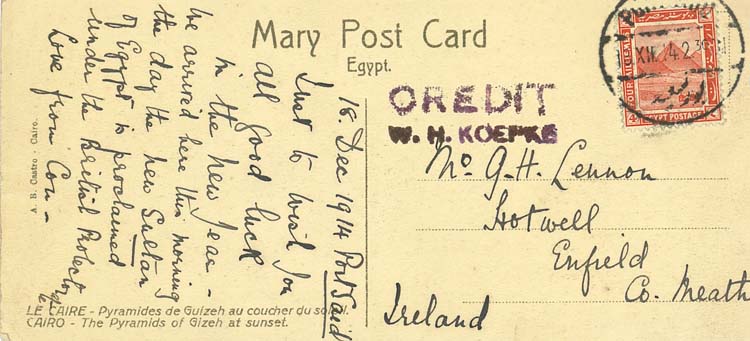 Mary Post Card
Egypt.
18 Dec 1914 Port Said
Just to wish you
all good luck
in the new year -
We arrived here this morning
the day the new Sultan
of Egypt is proclaimed
under the British Protectorate
Love from Con -
CREDIT
W. H. KOEPKE
G. H. Lennon
Hotwell
Enfield
Co. Meath
Ireland
A. B. Castro - Cairo.
LE CAIRE - Pyramides de Guizeh au coucher du soleil.
CAIRO - The Pyramids of Gizeh at sunset.
XII 14 2 30
بورسعيد
EGYPT POSTAGE